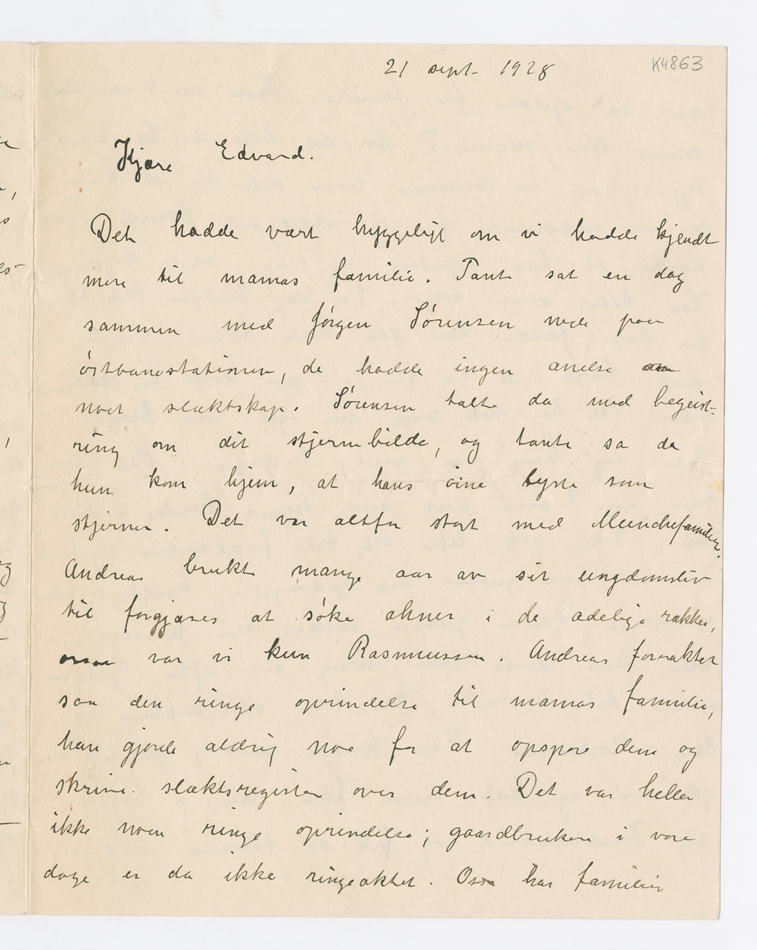 21 sept. 1928
K4863
Kjære Edvard.
Det hadde vært hyggeligt om vi hadde kjendt
mere til mamas familie. Tante sat en dag
sammen med Jørgen Sørensen nede paa
östbanestationen, de hadde ingen anelse
noet slæktskap. Sørensen talte da med begeist-
ring om dit stjernebilde, og tante sa da
hun kom hjem, at hans öine lyste som
stjerner. Det var altfor stort med Munchefamilien.
Andreas brukte mange aar av sit ungdomsliv
til forgjæves at söke ahner i de adelige rækker,
var vi kun Rasmussen. Andreas forraktet
saa den ringe oprindelse til mamas familie,
han gjorde aldrig noe for at opspore dem og
skrive slæktsregister over dem. Det var heller
ikke noen ringe oprindelse; gaardbrukere i vore
dage er da ikke ringeaktet. Ossaa har familien